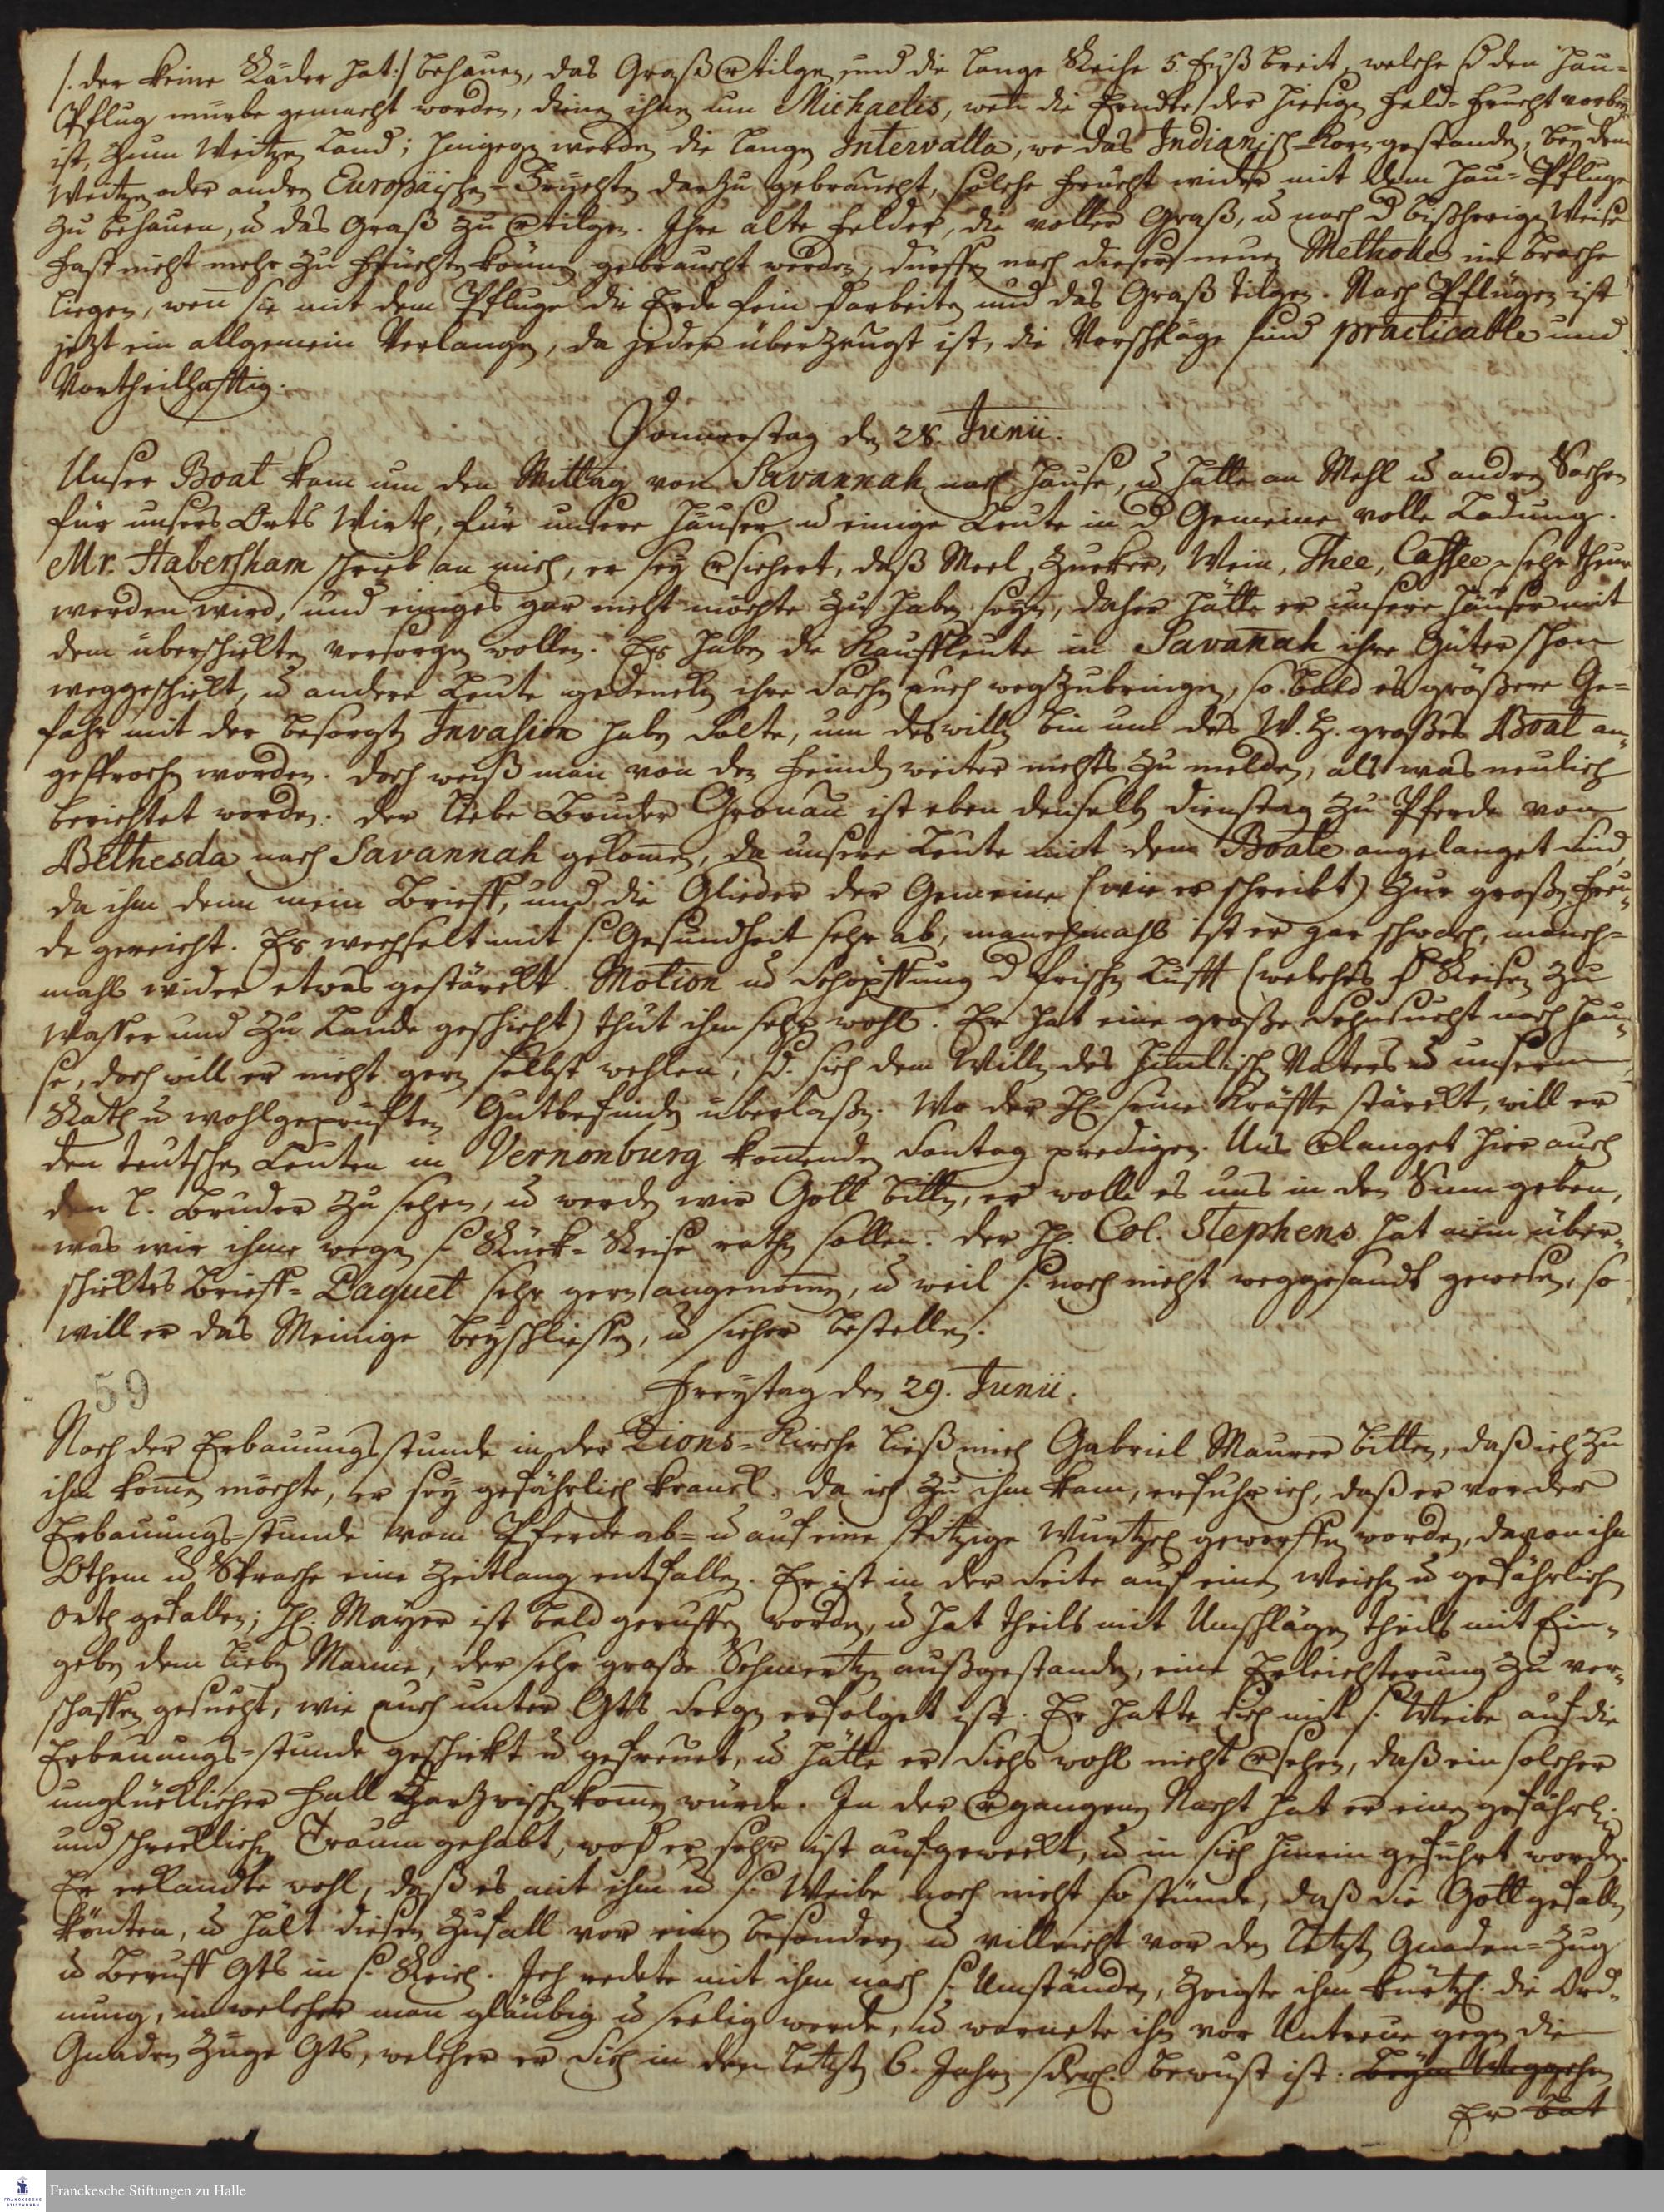 /: der keine Räder hat :/ behauen, das Graß vertilgen und die lange Reihe 5. Fuß breit, welche d den Hau=
Pflug mürbe gemacht worden, dienen ihnen um Michaelis, weñ die Erndte der hiesigen Feld=Frucht vorbey
ist, zum Weitzen Land; hingegen werden die langen Intervalla, wo das Indianisch=Korn gestanden, bey dem
Weitzen oder andren Europäischen=Früchten darzu gebraucht, solche Frucht wider mit dem Hau=Pfluge
zu behauen, u das Graß zu vertilgen. Ihre alte Felder, die voller Graß, u nach d bißherigen Weise
fast nicht mehr zu Früchten können gebraucht werden, dürffen nach dieser neuen Methode nie brache
liegen, weñ sie mit dem Pfluge die Erde fein bearbeiten und das Graß tilgen. Nach Pflügen ist
jetzt ein allgemein Verlangen, da jeder überzeugt ist, die Vorschläge sind practicable und
Vortheilhafftig.
Donnerstag den 28. Junii.
Unser Boat kam um den Mittag von Savannah nach Hause, u hatte an Mehl u andren Sachen
für unsers Orts Wirth, für unsere Häuser u einige Leute in d Gemeine volle Ladung.
Mr. Habersham schrieb an mich, er sey versichert, daß Meel, Zucker, Wein, Thee, Caffee sehr theur
werden wird, und einiges gar nicht möchte zu haben seyn, daher hätte er unsere Häuser mit
dem überschickten versorgen wollen. Es haben die Kauffleute in Savañah ihre Güter schon
weggeschickt, u andere Leute gedencken ihre Sachen auch wegzubringen, so bald es größere Ge=
fahr mit der besorgten Invasion haben solte, um deswillen bin um des W. H. großes Boat an=
gesprochen worden. Doch weiß man von den Feinden weiter nichts zu melden, als was neulich
berichtet worden. Der liebe Bruder Gronau ist eben denselben Dienstag zu Pferde von
Bethesda nach Savannah gekom̃en, da unsere Leute mit dem Boate angelanget sind,
da ihm denn mein Brieff, und die Glieder der Gemeine (wie er schreibt) zur großen Freu=
de gereicht. Es wechselt mit s. Gesundheit sehr ab, manchmahls ist er gar schwach, manch=
mahls wider etwas gestärckt. Motion u Schöpffung d frischen Lufft (welches d Reisen zu
Wasser und zu Lande geschieht) thut ihm sehr wohl. Er hat eine große Sehnsucht nach Hau=
se, doch will er nicht gern selbst wehlen, sd. sich dem Willen des him̃lischen Vaters u unserm
Rath u wohlgeprüften Gutbefinden überlaßen. Wo der H. seine Kräffte stärckt, will er
den teutschen Leuten in Vernonburg kom̃enden Sontag predigen. Uns verlanget hier auch
den l. Bruder zu sehen, u werden wir Gott bitten, er wolle es uns in den Sinn geben,
was wir ihme wegen s. Rück=Reise rathen sollen. Der H. Col. Stephens hat mein über=
schicktes Brieff=Paquet sehr gern angenom̃en, u weil s. noch nicht weggesandt gewesen, so
will er das Meinige beyschliessen, u sicher bestellen.
59
Freytag den 29. Junii.
Nach der Erbauungsstunde in der Zions=Kirche ließ mich Gabriel Maurer bitten, daß ich zu
ihm kom̃en möchte, er sey gefährlich kranck. Da ich zu ihm kam, erfuhr ich, daß er vor der
Erbauungs=stunde vom Pferde ab= u auf eine spitzige Wurtzel geworffen worden, davon ihm
Othem u Sprache eine Zeitlang entfallen. Er ist in der Seite auf einen weichen u gefährlichen
Orth gefallen; H. Mayer ist bald geruffen worden, u hat theils mit Umschlägen theils mit Ein=
geben dem lieben Manne, der sehr große Schmertzen außgestanden, eine Erleichterung zu ver=
schaffen gesucht, wie auch unter Gtts Seegen erfolget ist. Er hatte sich mit s. Weibe auf die
Erbauungs=stunde geschickt u gefreuet, u hätte er sichs wohl nicht versehen, daß ein solcher
unglücklicher Fall darzwischen kom̃en würde. In der vergangenen Nacht hat er einen gefährlichen
und schrecklichen Traum gehabt, wod er sehr ist aufgeweckt, u in sich hinein geführt worden.
Er erkandte wohl, daß es mit ihm u s. Weibe noch nicht so stünde, daß sie Gott gefallen
könten, u hält diesen Zufall vor einen besondern u villeicht vor den letzten Gnaden=Zug
u Beruff Gtts in s. Reich. Ich redete mit ihm nach s. Umständen, zeigte ihm kürtzl. die Ord=
nung, in welcher man gläubig u seelig werde, u warnete ihn vor Untreue gegen die
Gnaden Züge Gtts, welcher er sich in den letzten 6. Jahren bewust ist. Beym Weggehen
Er bat
Franckesche Stiftungen zu Halle